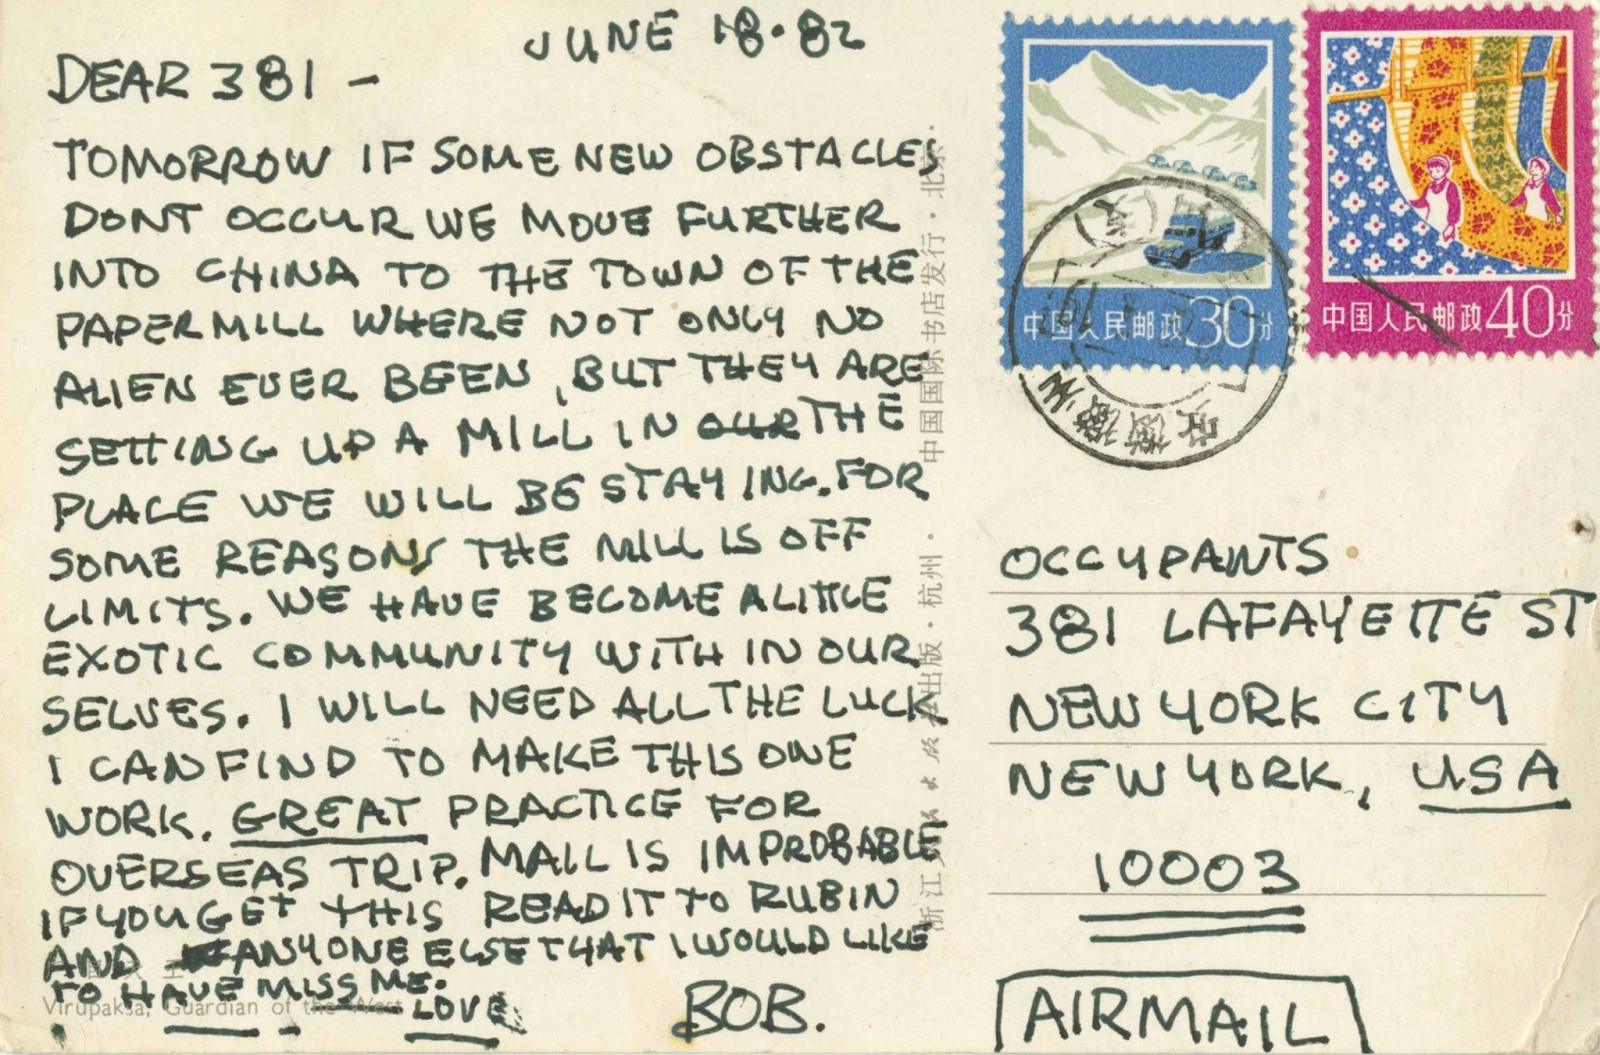 JUNE 18·82
DEAR 381 –
TOMORROW IF SOME NEW OBSTACLES
DONT OCCUR WE MOVE FURTHER
INTO CHINA TO THE TOWN OF THE
PAPERMILL WHERE NOT ONLY NO
ALIEN EVER BEEN, BUT THEY ARE
SETTING UP A MILL IN OUR THE
PLACE WE WILL BE STAYING. FOR
SOME REASONS THE MILL IS OFF
LIMITS. WE HAVE BECOME A LITTLE
EXOTIC COMMUNITY WITH IN OUR
SELVES. I WILL NEED ALL THE LUCK
I CAN FIND TO MAKE THIS ONE
WORK. GREAT PRACTICE FOR
OVERSEAS TRIP. MAIL IS IMPROBABLE
IF YOU GET THIS READ IT TO RUBIN
AND ANYONE ELSE THAT I WOULD LIKE
TO HAVE MISS ME.
LOVE
BOB.
Virupaksa, Guardian of the West
浙江人民出版·杭州·
中国国际书店发行·北京·
中国人民邮政30分
中国人民邮政40分
安徽
OCCUPANTS
381 LAFAYETTE ST
NEW YORK CITY
NEW YORK, USA
10003
AIRMAIL